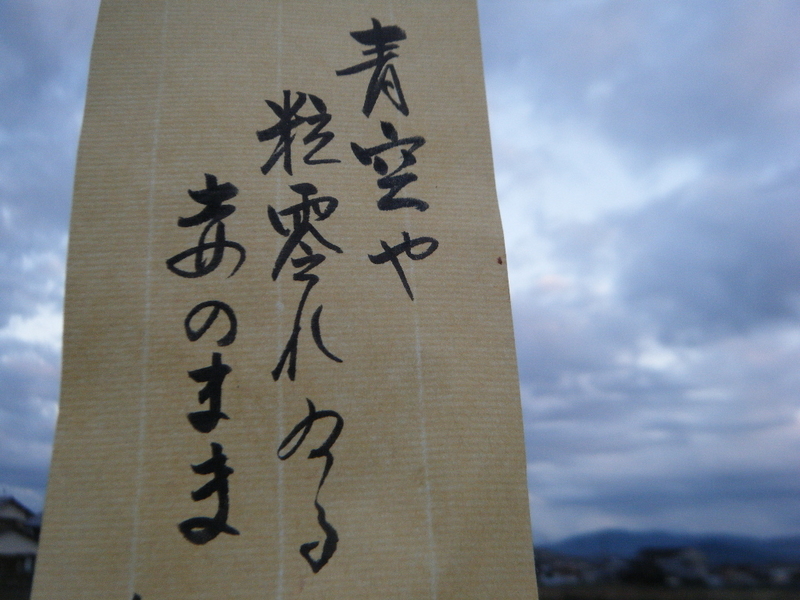 青空や
粒零れゐる
毒のまま